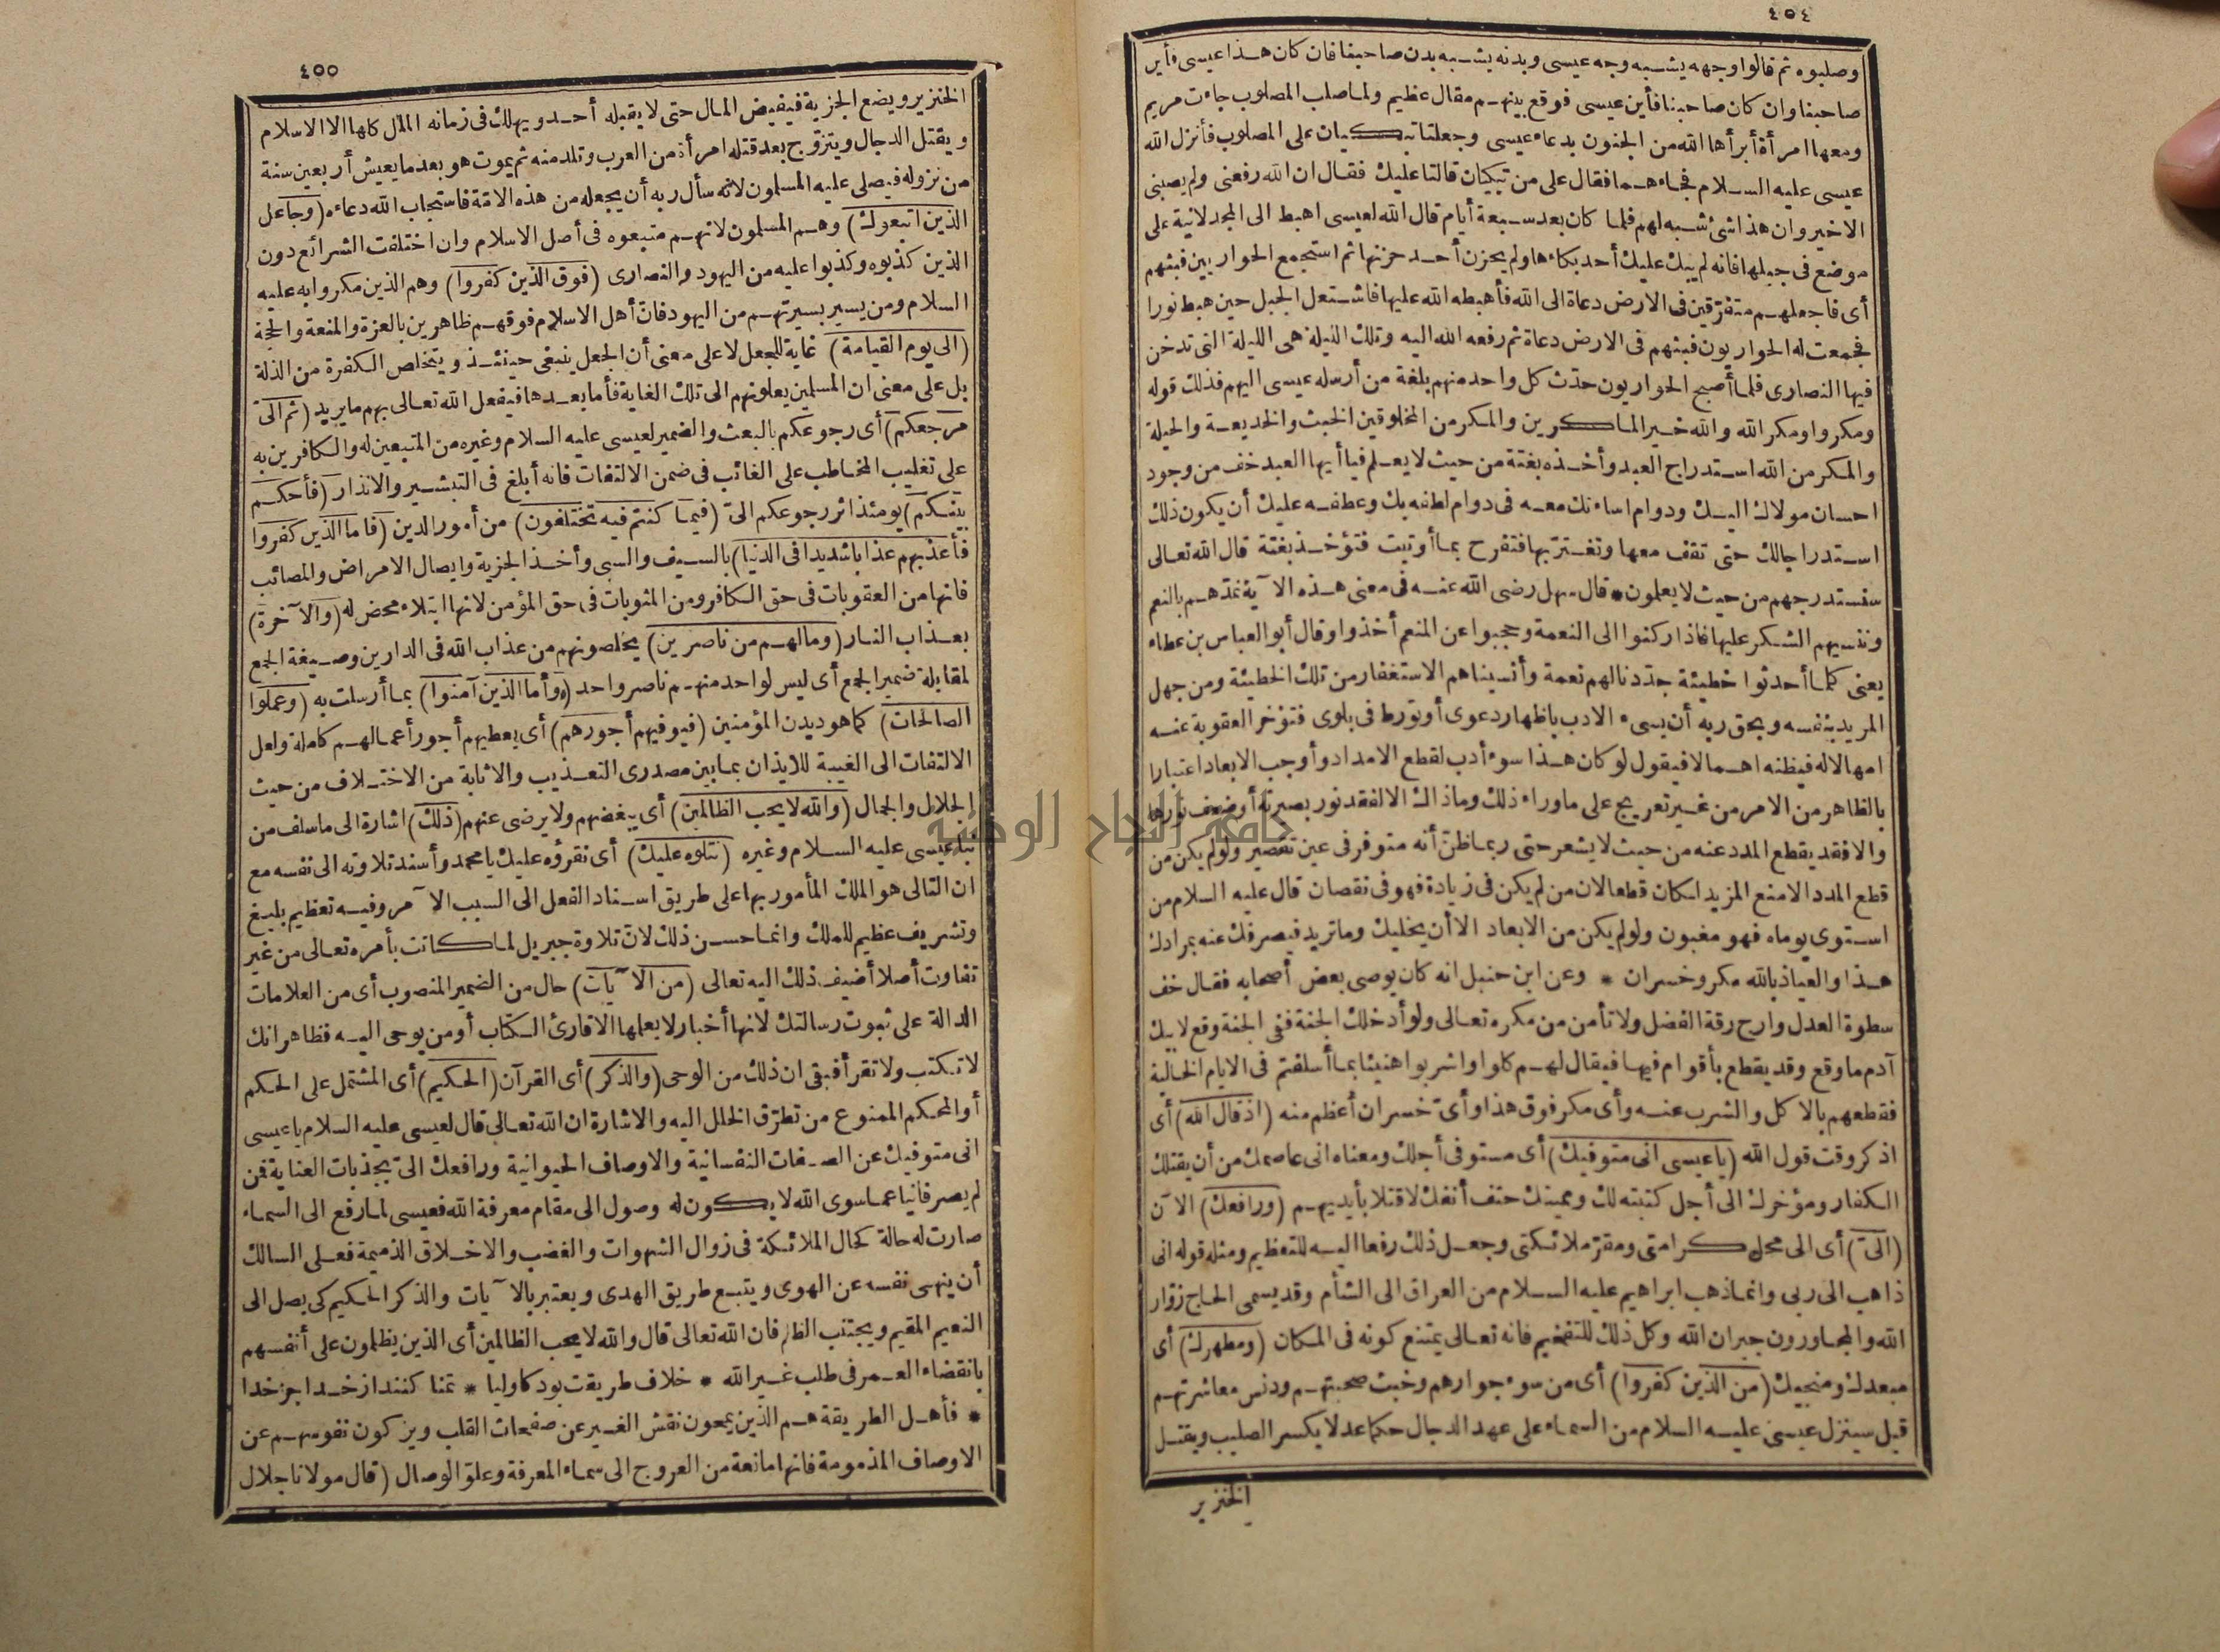 ٤٥٤
وصلبوه ثم قالوا وجهه يشبه وجه عيسى وبدنه يشبه بدن صاحبنا فان كان هذا عيسى فأين
صاحبنا وان كان صاحبنا فأين عيسى فوقع بينهم مقال عظيم ولما صلب المصلوب جاءت مريم
ومعها امرأة أبرأها الله من الجنون بدعاء عيسى وجعلتا تبكيان على المصلوب فأنزل الله
عيسى عليه السلام فجاءهما فقال على من تبكيان قالتا عليك فقال ان الله رفعنى ولم يصبنى
الاخير وان هذا شئ شبه لهم فلما كان بعد سبعة أيام قال الله لعيسى اهبط الى المجدلانية على
موضع فى جبلها فانه لم يبك عليك أحد بكاءها ولم يحزن أحد حزنها ثم استجمع الحواريين فبثهم
أى فاجعلهم متفرّقين فى الارض دعاة الى الله فأهبطه الله عليها فاشتعل الجبل حين هبط نورا
فجمعت له الحواريون فبثهم فى الارض دعاة ثم رفعه الله اليه وتلك الليلة هى الليلة التى تدخن
فيها النصارى فلما أصبح الحواريون حدّث كل واحد منهم بلغة من أرسله عيسى اليهم فذلك قوله
ومكروا ومكر الله والله خير الماكرين والمكر من المخلوقين الخبث والخديعة والحيلة
والمكر من الله استدراج العبد وأخذه بغتة من حيث لا يعلم فيا أيها العبد خف من وجود
احسان مولاك اليك ودوام اساءتك معه فى دوام لطفه بك وعطفه عليك أن يكون ذلك
استدراجا لك حتى تقف معها وتغترّ بها فتفرح بما أوتيت فتؤخذ بغتة قال الله تعالى
سنستدرجهم من حيث لا يعلمون * قال سهل رضى الله عنه فى معنى هذه الآية نمدّهم بالنعم
وننسيهم الشكر عليها فاذا ركنوا الى النعمة وحجبوا عن المنعم أخذوا وقال أبو العباس بن عطاء
يعنى كلما أحدثوا خطيئة جدّدنا لهم نعمة وأنسيناهم الاستغفار من تلك الخطيئة ومن جهل
المريد بنفسه وبحق ربه أن يسىء الادب باظهار دعوى أو تورّط فى بلوى فتؤخر العقوبة عنه
امهالا له فيظنه اهمالا فيقول لو كان هذا سوء أدب لقطع الامداد وأوجب الابعاد اعتبارا
بالظاهر من الامر من غير تعريج على ما وراء ذلك وما ذاك الا لفقد نور بصيرته أوضعف نورها
والا فقد يقطع المدد عنه من حيث لا يشعر حتى ربما ظنّ أنه متوفر فى عين تقصير ولو لم يكن من
قطع المدد الا منع المزيد لكان قطعا لان من لم يكن فى زيادة فهو فى نقصان قال عليه السلام من
استوى يوماه فهو مغبون ولو لم يكن من الابعاد الا أن يخليك وما تريد فيصرفك عنه بمرادك
هذا والعياذ بالله مكر وخسران * وعن ابن حنبل انه كان يوصى بعض أصحابه فقال خف
سطوة العدل وارج رقة الفضل ولا تأمن من مكره تعالى ولو أدخلك الجنة ففى الجنة وقع لابيك
آدم ما وقع وقد يقطع بأقوام فيها فيقال لهم كلوا واشربوا هنيئا بما أسلفتم فى الايام الخالية
فقطعهم بالاكل والشرب عنه وأى مكر فوق هذا وأىّ خسران أعظم منه (اذ قال الله) أى
اذكر وقت قول الله (يا عيسى انى متوفيك) أى مستوفى أجلك ومعناه انى عاصمك من أن يقتلك
الكفار ومؤخرك الى أجل كتبته لك ومميتك حتف أنفك لا قتلا بأيديهم (ورافعك) الآن
(الىّ) أى الى محل كرامتى ومقرّ ملائكتى وجعل ذلك رفعا اليه للتعظيم ومثله قوله انى
ذاهب الى ربى وانما ذهب ابراهيم عليه السلام من العراق الى الشأم وقد يسمى الحاج زوّار
الله والمجاورون جيران الله وكل ذلك للتفخيم فانه تعالى يمتنع كونه فى المكان (ومطهرك) أى
مبعدك ومنجيك (من الذين كفروا) أى من سوء جوارهم وخبث صحبتهم ودنس معاشرتهم
قيل سينزل عيسى عليه السلام من السماء على عهد الدجال حكما عدلا يكسر الصليب ويقتل
الخنزير
٤٥٥
الخنزير ويضع الجزية فيفيض المال حتى لا يقبله أحد ويهلك فى زمانه الملل كلها الا الاسلام
ويقتل الدجال ويتزوّج بعد قتله امرأة من العرب وتلد منه ثم يموت هو بعد ما يعيش أربعين سنة
من نزوله فيصلى عليه المسلمون لانه سأل ربه أن يجعله من هذه الامّة فاستجاب الله دعاءه (وجاعل
الذين اتبعوك) وهم المسلمون لانهم متبعوه فى أصل الاسلام وان اختلفت الشرائع دون
الذين كذبوه وكذبوا عليه من اليهود والنصارى (فوق الذين كفروا) وهم الذين مكروا به عليه
السلام ومن يسير بسيرتهم من اليهود فان أهل الاسلام فوقهم ظاهرين بالعزة والمنعة والحجة
(الى يوم القيامة) غاية للجعل لا على معنى أن الجعل ينبغى حينئذ ويتخلص الكفرة من الذلة
بل على معنى ان المسلمين يعلونهم الى تلك الغاية فأما بعدها فيفعل الله تعالى بهم ما يريد (ثم الىّ
مرجعكم) أى رجوعكم بالبعث والضمير لعيسى عليه السلام وغيره من المتبعين له والكافرين به
على تغليب المخاطب على الغائب فى ضمن الالتفات فانه أبلغ فى التبشير والانذار (فأحكم
بينكم) يومئذ اثر رجوعكم الىّ (فيما كنتم فيه تختلفون) من أمور الدين (فاما الذين كفروا
فأعذبهم عذابا شديدا فى الدنيا) بالسيف والسبى وأخذ الجزية وايصال الامراض والمصائب
فانها من العقوبات فى حق الكافر ومن المثوبات فى حق المؤمن لانها ابتلاء محض له (والآخرة)
بعذاب النار (وما لهم من ناصرين) يخلصونهم من عذاب الله فى الدارين وصيغة الجمع
لمقابلة ضمير الجمع أى ليس لواحد منهم ناصر واحد (وأما الذين آمنوا) بما أرسلت به (وعملوا
الصالحات) كما هو ديدن المؤمنين (فيوفيهم أجورهم) أى يعطيهم أجور أعمالهم كاملة ولعل
الالتفات الى الغيبة للايذان بما بين مصدرى التعذيب والاثابة من الاختلاف من حيث
الجلال والجمال (والله لا يحب الظالمين) أى يبغضهم ولا يرضى عنهم (ذلك) اشارة الى ما سلف من
نبا عيسى عليه السلام وغيره (نتلوه عليك) أى نقرؤه عليك يا محمد وأسند تلاوته الى نفسه مع
ان التالى هو الملك المأمور بها على طريق اسناد الفعل الى السبب الآمر وفيه تعظيم بليغ
وتشريف عظيم للملك وانما حسن ذلك لانّ تلاوة جبريل لما كانت بأمره تعالى من غير
تفاوت أصلا أضيف ذلك اليه تعالى (من الآيات) حال من الضمير المنصوب أى من العلامات
الدالة على ثبوت رسالتك لانها أخبار لا يعلمها الا قارئ الكتاب أو من يوحى اليه فظاهر انك
لا تكتب ولا تقرأ فبقى ان ذلك من الوحى (والذكر) أى القرآن (الحكيم) أى المشتمل على الحكم
أو المحكم الممنوع من تطرّق الخلل اليه والاشارة ان الله تعالى قال لعيسى عليه السلام يا عيسى
انى متوفيك عن الصفات النفسانية والاوصاف الحيوانية ورافعك الىّ بجذبات العناية فمن
لم يصر فانيا عما سوى الله لا يكون له وصول الى مقام معرفة الله فعيسى لما رفع الى السماء
صارت له حالة كحال الملائكة فى زوال الشهوات والغضب والاخلاق الذميمة فعلى السالك
أن ينهى نفسه عن الهوى ويتبع طريق الهدى ويعتبر بالآيات والذكر الحكيم كى يصل الى
النعيم المقيم ويجتنب الظلم فان الله تعالى قال والله لا يحب الظالمين أى الذين يظلمون على أنفسهم
بانقضاء العمر فى طلب غير الله * خلاف طريقت بود كاوليا * تمنا كنند از خدا جز خدا
* فأهل الطريقة هم الذين يمحون نقش الغير عن صفحات القلب ويزكون نفوسهم عن
الاوصاف المذمومة فانها مانعة من العروج الى سماء المعرفة وعلوّ الوصال (قال مولانا جلال
جامعة النجاح الوطنية